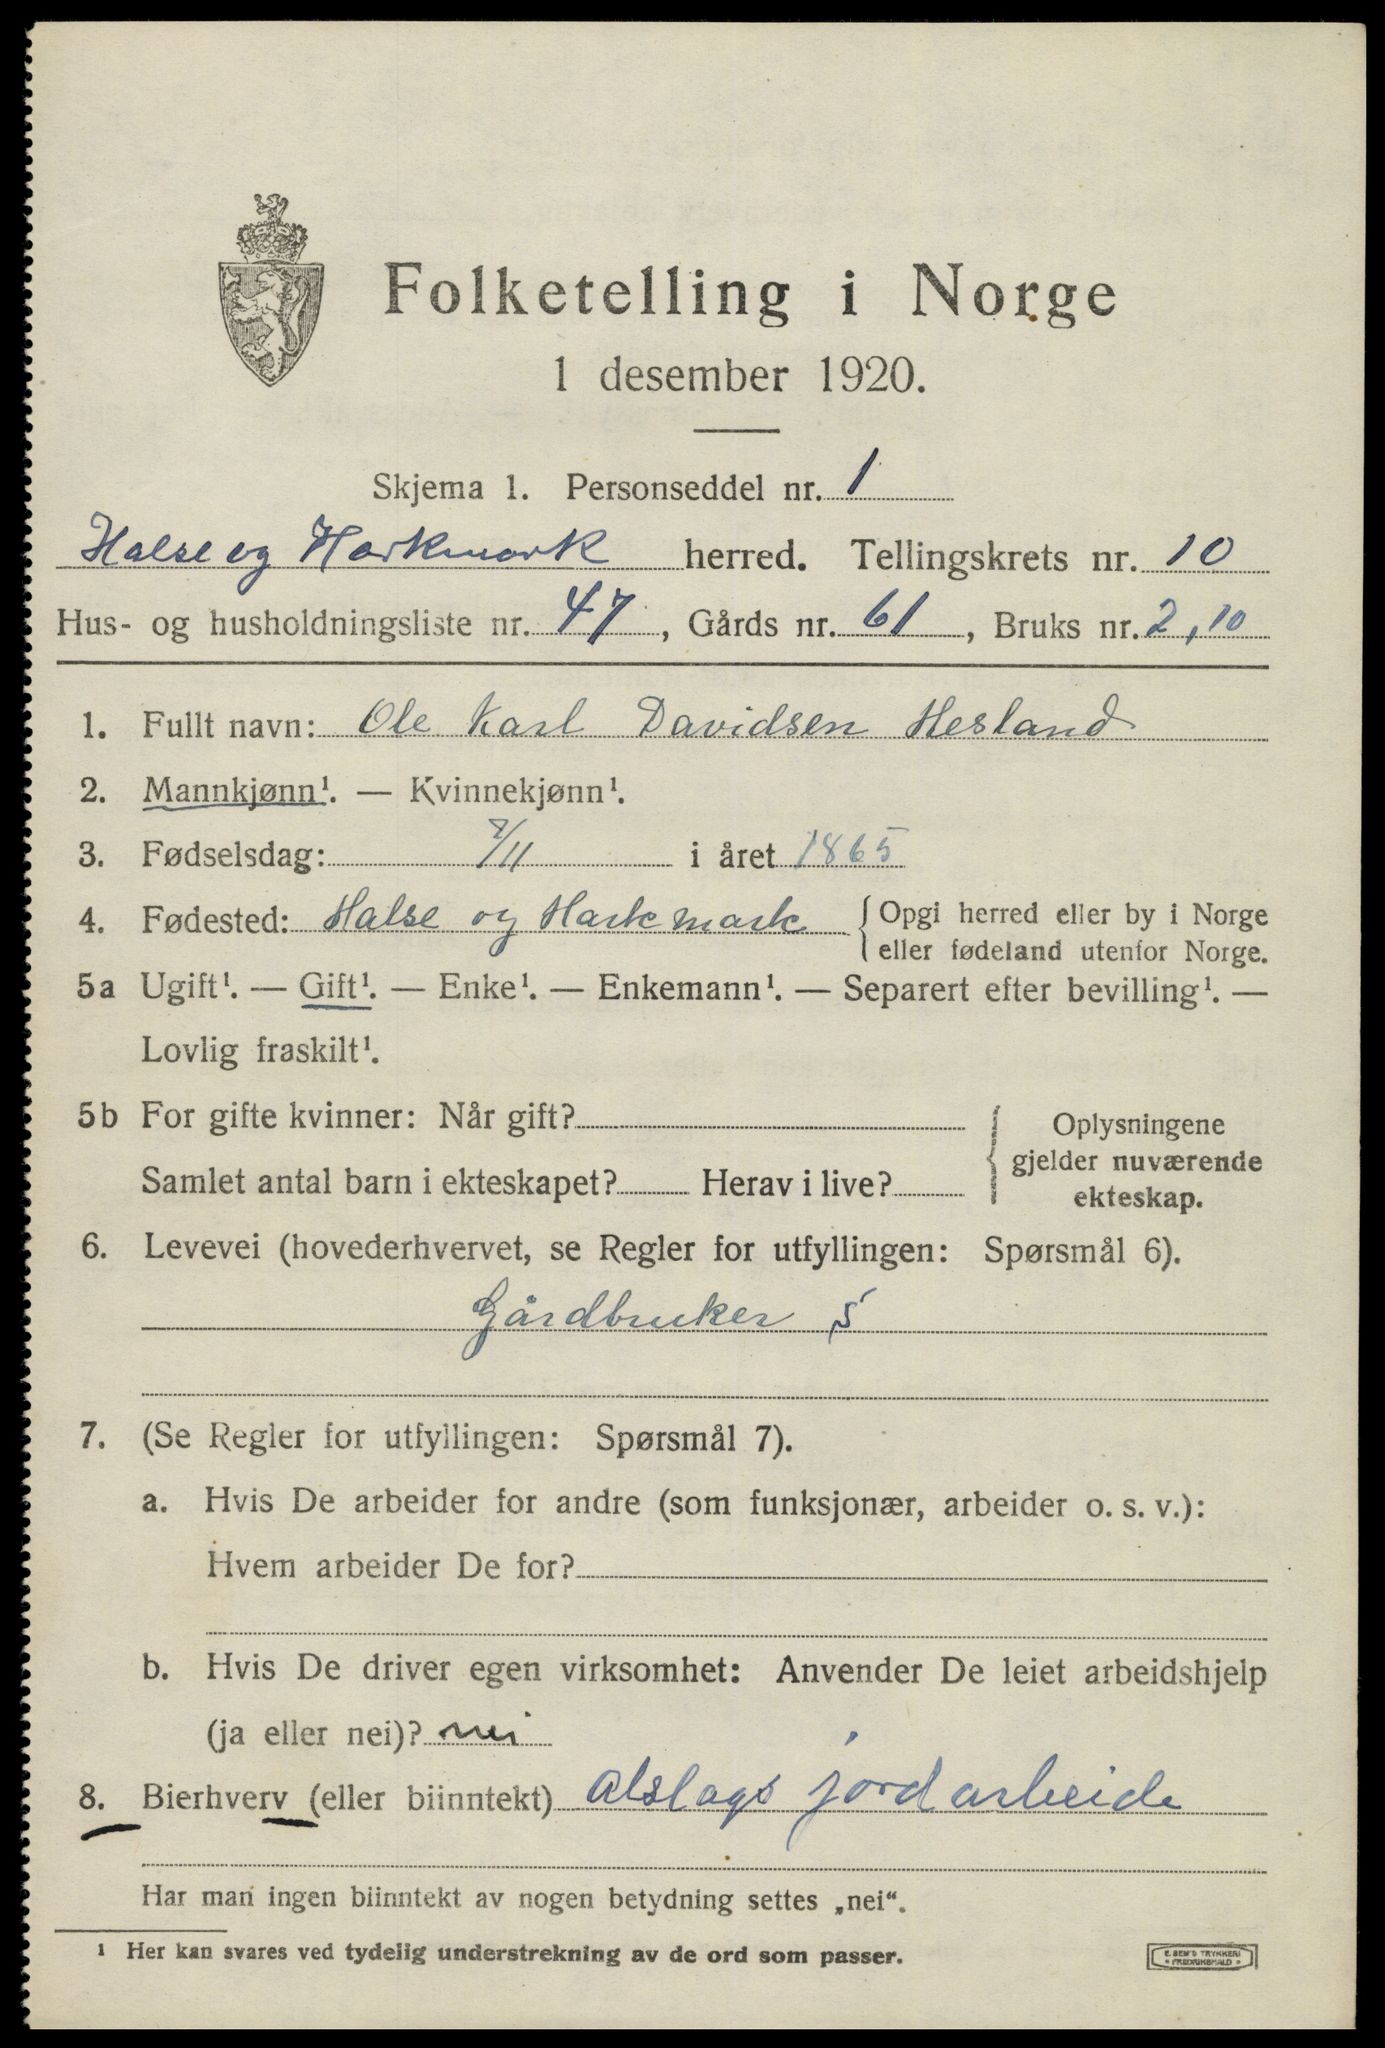 Folketelling i Norge
1 desember 1920.
Skjema 1. Personseddel nr. 1
Halse og Harkmark herred. Tellingskrets nr. 10
Hus- og husholdningsliste nr. 47, Gårds nr. 61, Bruks nr. 2, 10
1. Fullt navn: Ole Karl Davidsen Hesland
2. Mannkjønn¹. — Kvinnekjønn¹.
3. Fødselsdag: 7/11 i året 1865
4. Fødested: Halse og Harkmark { Opgi herred eller by i Norge
eller fødeland utenfor Norge.
5a Ugift¹. — Gift¹. — Enke¹. — Enkemann¹. — Separert efter bevilling¹. —
Lovlig fraskilt¹.
5b For gifte kvinner: Når gift? { Oplysningene
gjelder nuværende
Samlet antal barn i ekteskapet? Herav i live?
ekteskap.
6. Levevei (hovederhvervet, se Regler for utfyllingen: Spørsmål 6).
Gårdbruker S
7. (Se Regler for utfyllingen: Spørsmål 7).
a. Hvis De arbeider for andre (som funksjonær, arbeider o. s. v.):
Hvem arbeider De for?
b. Hvis De driver egen virksomhet: Anvender De leiet arbeidshjelp
(ja eller nei)? nei
8. Bierhverv (eller biinntekt) alslags jordarbeide
Har man ingen biinntekt av nogen betydning settes „nei“.
1 Her kan svares ved tydelig understrekning av de ord som passer.
E. SEM'S TRYKKERI
• FREDRIKSHALD •